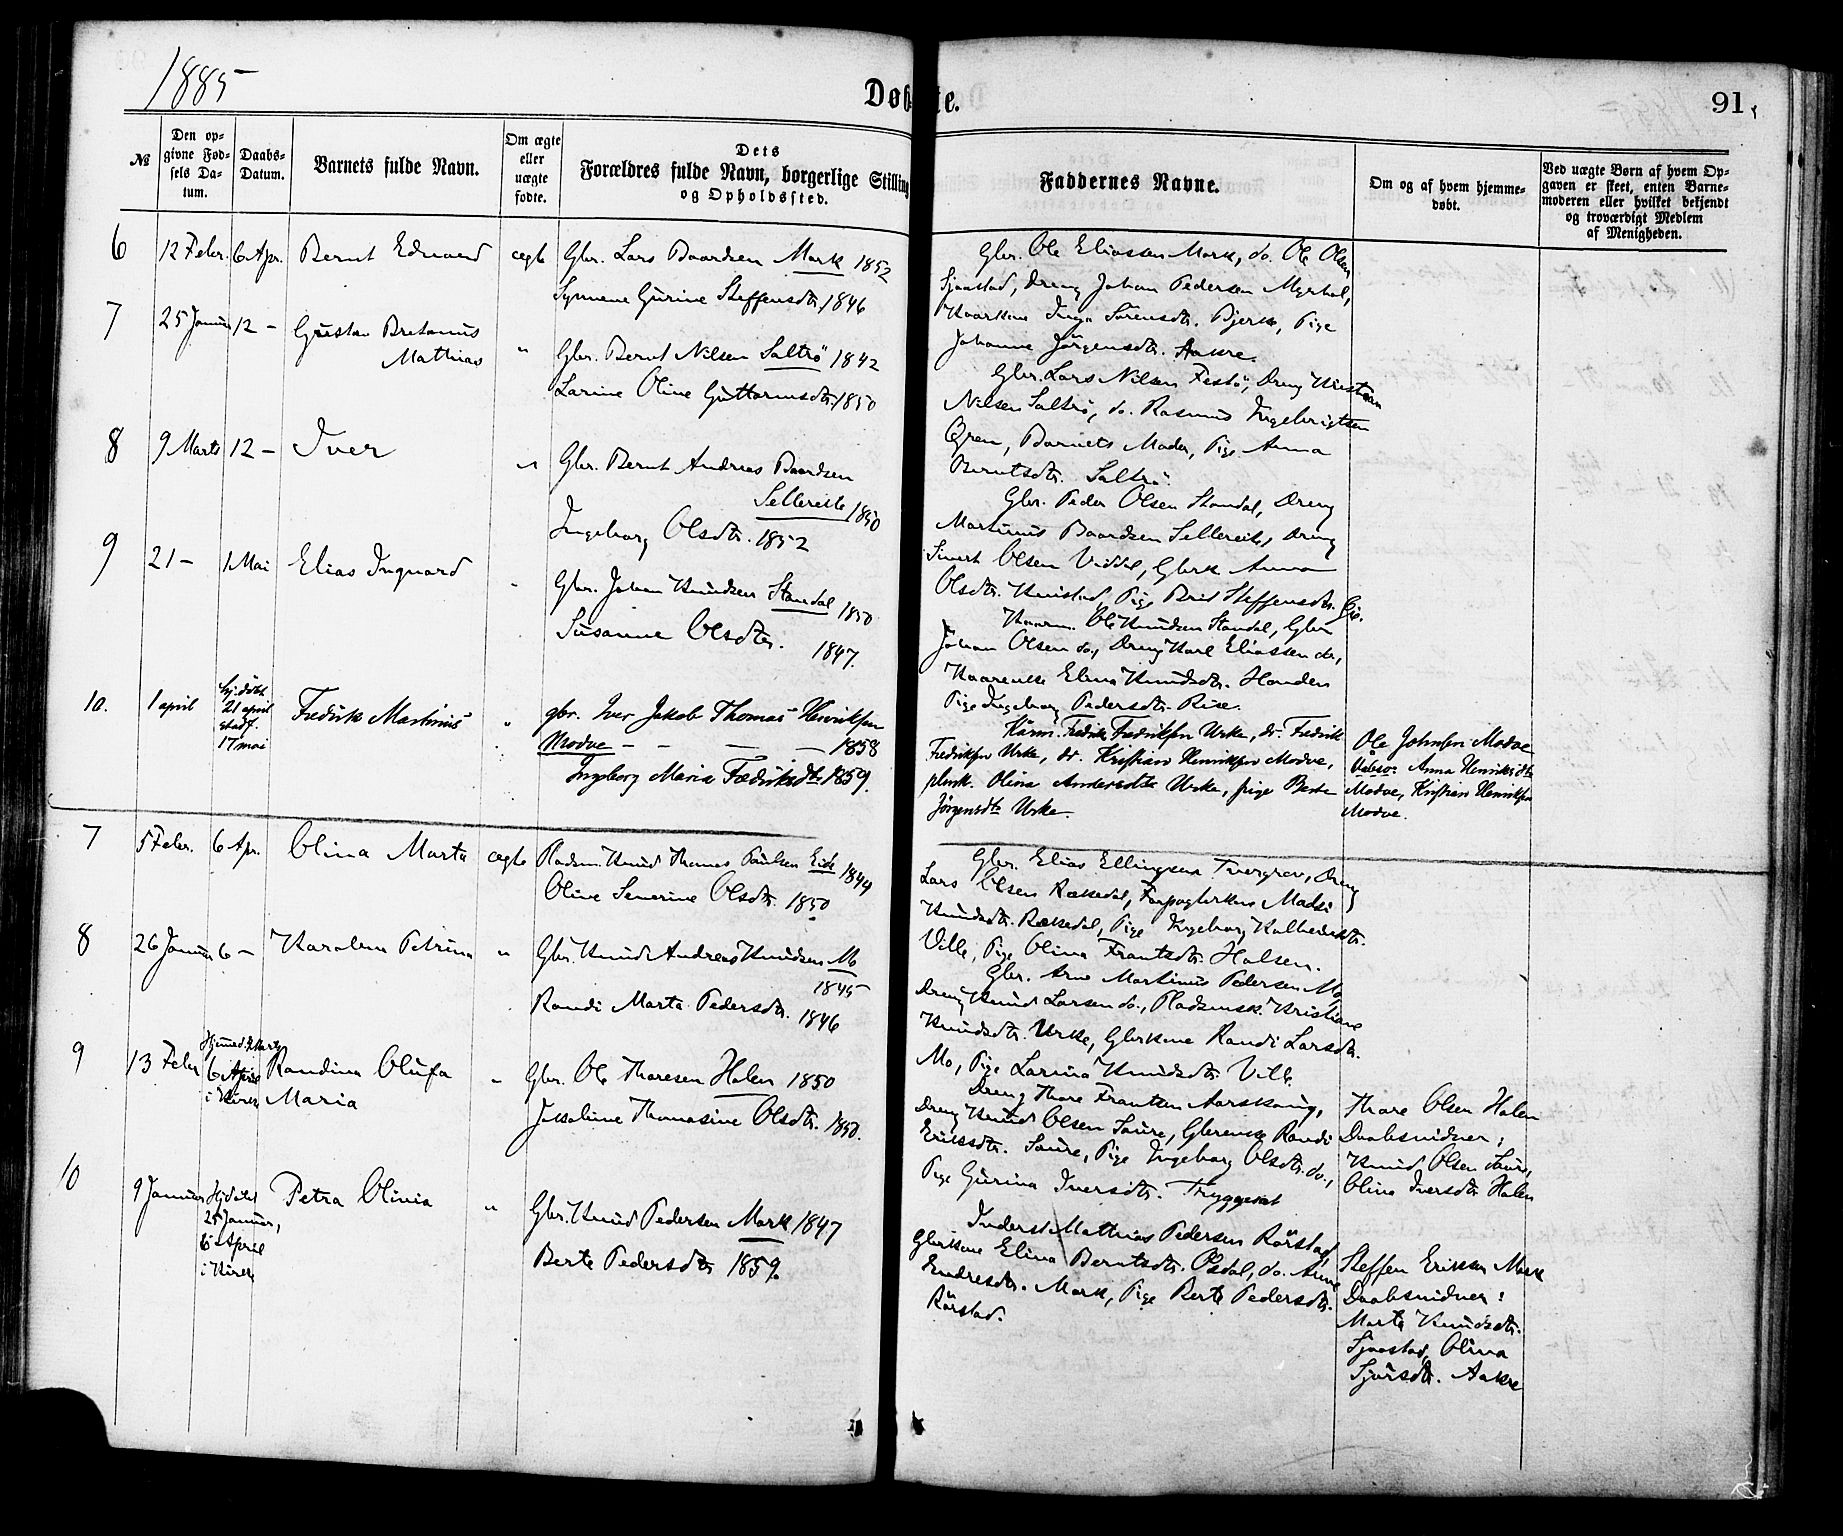 1885
Døbte.
91.
№
Den opgivne Fødsels Datum.
Daabs-Datum.
Barnets fulde Navn.
Om ægte eller uægte fødte.
Dets
Forældres fulde Navn, borgerlige Stilling
og Opholdssted.
Faddernes Navne.
Om og af hvem hjemmedøbt.
Ved uægte Børn af hvem Opgaven er skeet, enten Barnemoderen eller hvilket bekjendt og troværdigt Medlem af Menigheden.
6 12 Febr. 6 Apr. Bernt Edvard ægte Gbr. Lars Baardsen Mork 1852
Synnene Gurine Steffensdtr. 1846
Gbr. Ole Eliassen Mork, do. Ole Olsen
Sjaastad, Dreng Johan Pedersen Myrhol,
Kaarkone Inga Sørensdtr. Bjerke, Pige
Johanne Jørgensdtr. Aakre.
7 25 Januar 12 – Gustav Bretanus
Mathias
" Gbr. Bernt Nilsen Saltrö 1842
Larine Oline Guttormsdtr. 1850
Gbr. Lars Nilsen Festö, Dreng Kristian
Nilsen Saltrö, do. Rasmus Ingebrigtsen
Øren, Barnets Moder, Pige Anna
Berntsdtr. Saltrö.
8 9 Marts 12 – Iver
" Gbr. Bernt Andreas Baardsen
Sellereite 1850
Ingeborg Olsdtr. 1852
Gbr. Peder Olsen Standal, Dreng
Martinus Baardsen Sellereite, Dreng
Sivert Olsen Viddal, Gbrk Anna
Olsdtr. Kvistad, Pige Brit Steffensdtr.
9 21 – 1 Mai Elias Ingvard
" Gbr. Johan Knudsen Standal 1850
Susanne Olsdtr. 1847.
Kaarm. Ole Knudsen Standal, Gbr.
Johan Olsen do, Dreng Karl Eliassen do,
Kaarenke Elina Knudsdtr. Handen
Pige Ingeborg Pedersdtr. Rise.
10. 1 april hj.døbt
21 april
stadf.
17 mai
Fredrik Martinus
" gbr. Iver Jakob Thomas Henriksen
Modve – – – – 1858
Ingeborg Maria Fredriksdtr. 1859.
Kårm. Fredrik Fredriksen Urke, do. Fredrik
Fredriksen Urke, do. Kristian Henriksen Modve,
plmk. Olina Andersdtr Urke, pige Berte
Jörgensdtr Urke.
Ole Johnsen Modve
Anna Henriksdtr
Modve, Kristian Henriksen
Modve.
7 5 Febr. 6 Apr. Olina Marta ægte Pladsm. Knud Thomas Paulsen Eide 1849
Oline Severine Olsdtr. 1850
Gbr. Elias Ellingsen Tvergrov, Dreng
Lars Olsen Rækkedal, Madsi
Knudsdtr. Rækkedal, Pige Ingeborg
Ville, Pige Olina Frantsdtr. Halsen.
8 26 Januar 6 – Karoline Petrina
" Gbr. Knud Andreas Knudsen Mo
1845
Randi Marta Pedersdtr. 1846
Gbr. Arne Martinus Pedersen Mo,
Dreng Knud Larsen do., Pladsmsk. Kristiane
Knudsdtr. Urke, Gbrkone Randi Larsdtr.
Mo, Pige Larina Knudsdtr. Ville.
9 13 Febr Hjemmed. Marts
6 April
i Kirk.
Randina Olufa
Maria
" Gbr. Ole Tharesen Halen 1850
Jakobine Thomasine Olsdtr. 1850.
Dreng Thore Frantsen Aarskoug,
Dreng Knud Olsen Saure, Gbrenke Randi
Eriksdtr. Saure, Pige Ingeborg Olsdtr. do.,
Pige Gurina Iversdtr. Tryggestad
Thore Olsen Halen
Daabsvidner:
Knud Olsen Saure,
Olina Iversdtr Halen
10 9 Januar Hj.døbt
25 Januar,
6 April
i Kirk.
Petra Olivia
" Gbr. Knud Pedersen Mork 1847
Berte Pedersdtr 1859.
Inderst Mathias Pedersen Rörstad,
Gbrkone Elina Berntsdtr. Opdal, do. Anne
Endresdtr. Mork, Pige Berte Pedersdtr.
Rörstad.
Steffen Eriksen Mork
Daabsvidner:
Marte Knudsdtr.
Sjaastad, Olina
Sjursdtr. Aakre